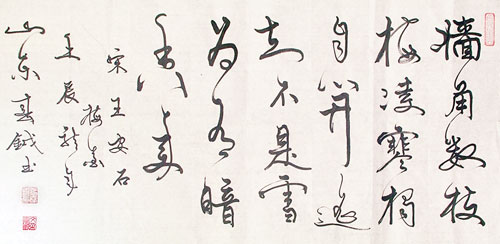 墙角数枝
梅凌寒独
自开遥
知不是雪
为有暗
香来
宋王安石
梅花
壬辰龙年
山东春